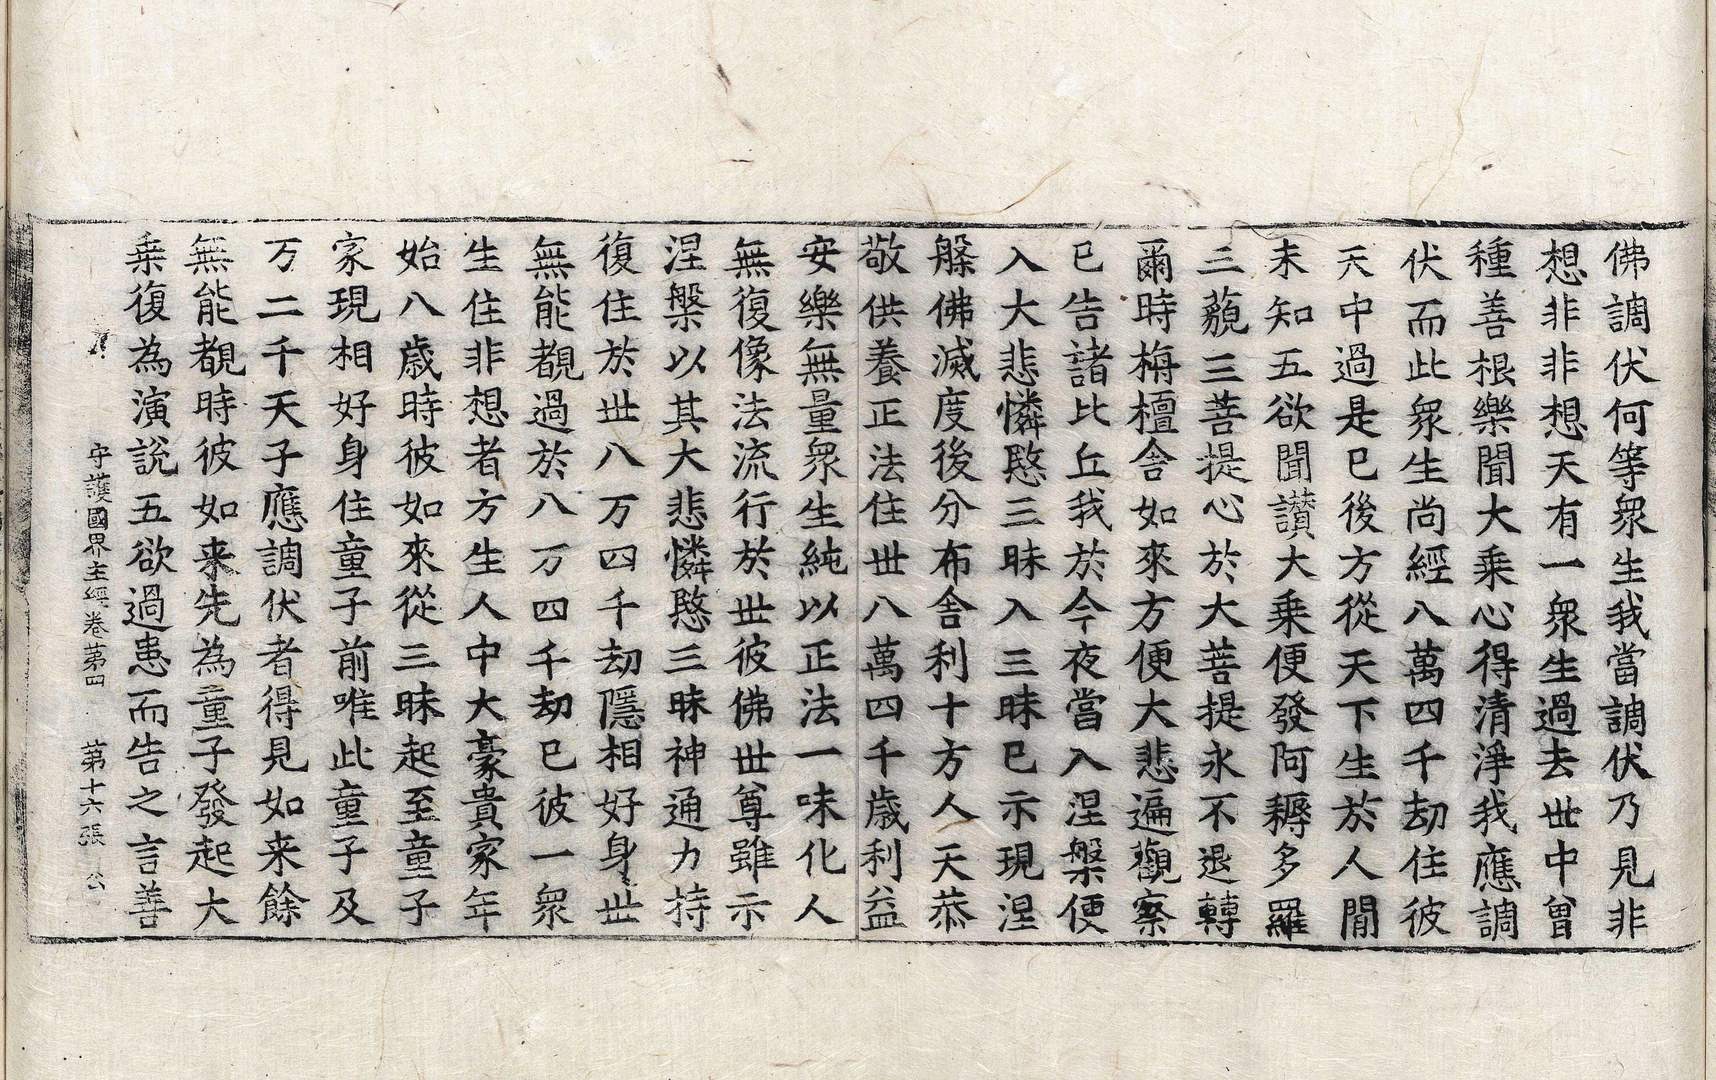 佛調伏何等衆生我當調伏乃見非
想非非想天有一衆生過去世中曾
種善根樂聞大乗心得清淨我應調
伏而此衆生尚經八萬四千劫住彼
天中過是已後方從天下生於人間
未知五欲聞讃大乗便發阿耨多羅
三藐三菩提心於大菩提永不退轉
爾時栴檀舎如來方便大悲遍觀察
已告諸比丘我於今夜當入涅槃便
入大悲憐愍三昧入三昧已示現涅
槃佛滅度後分布舍利十方人天恭
敬供養正法住世八萬四千歳利益
安樂無量衆生純以正法一味化人
無復像法流行於世彼佛世尊雖示
涅槃以其大悲憐愍三昧神通力持
復住於世八万四千劫隱相好身世
無能覩過於八万四千劫已彼一衆
生住非想者方生人中大豪貴家年
始八歳時彼如來從三昧起至童子
家現相好身住童子前唯此童子及
万二千天子應調伏者得見如来餘
無能覩時彼如来先為童子發起大
乗復為演說五欲過患而告之言善
守護國界主經卷第四 第十六張 公